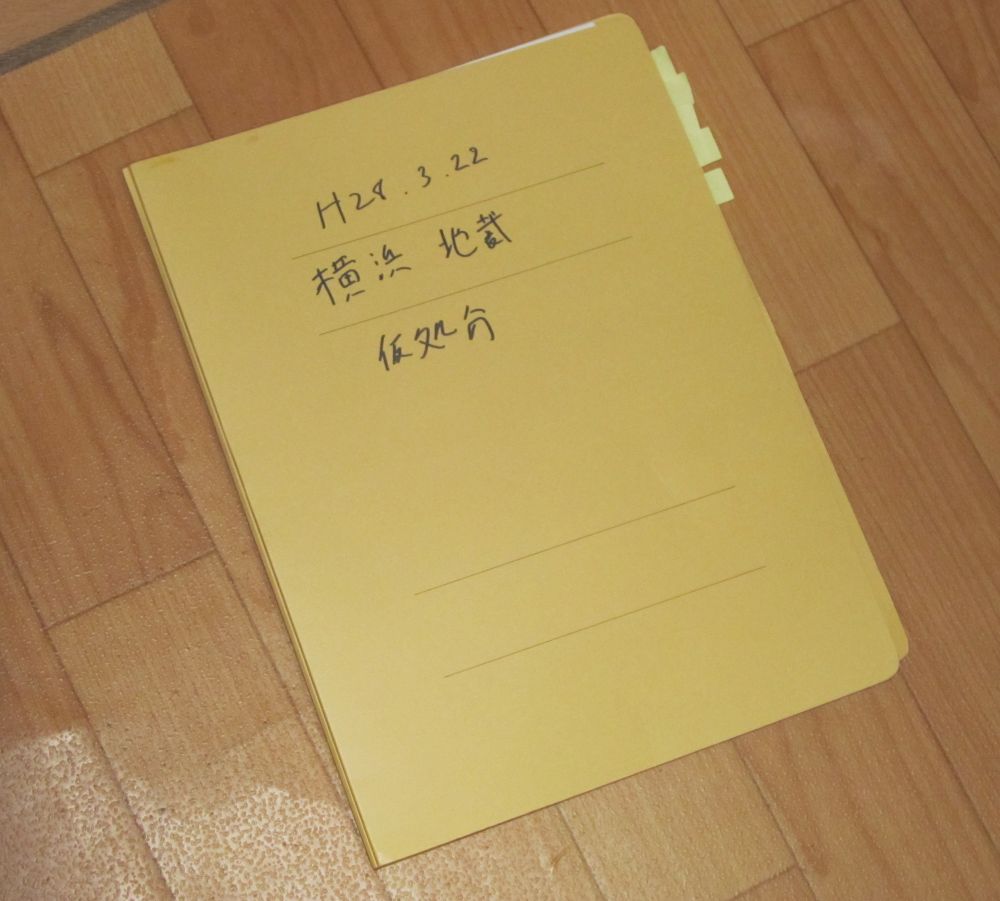 H28.3.22
横浜 地裁
仮処分